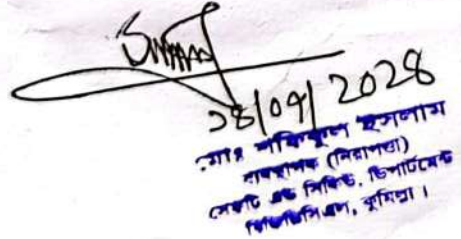 28/04/2028
মোঃ শফিকুল ইসলাম
ব্যবস্থাপক (নিরাপত্তা)
সেফটি এন্ড সিকিউ, ডিপার্টমেন্ট
বিজিডিসিএল, কুমিল্লা।